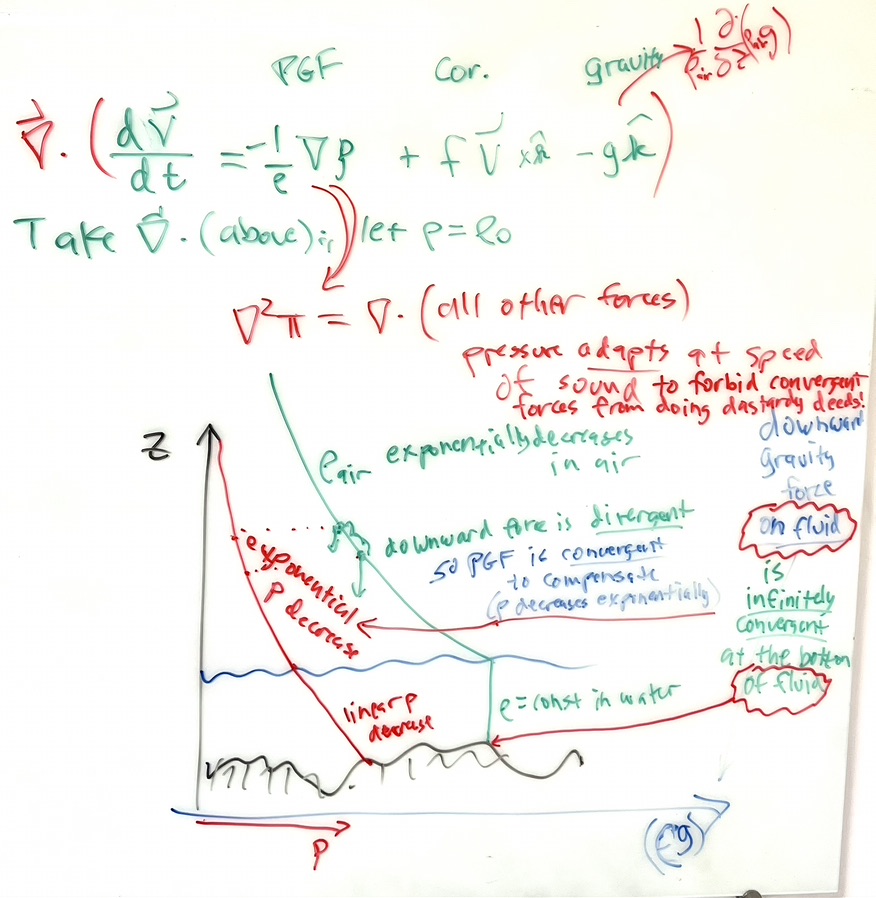 PGF Cor. gravity 1/ρair ∂/∂z (ρair g)
∇⃗ · ( dV⃗/dt = -1/ρ ∇p + f V⃗ x k̂ - g k̂ )
Take ∇⃗ · (above); let ρ = ρ0
∇²π = ∇ · (all other forces)
pressure adapts at speed
of sound to forbid convergent
forces from doing dastardy deeds!
Z
ρair exponentially decreases
in air
downward force is divergent
so PGF is convergent
to compensate
(p decreases exponentially)
downward
gravity
force
on fluid
is
infinitely
convergent
at the bottom
of fluid
exponential
p decrease
linear p
decrease
ρ = const in water
p
(ρg)